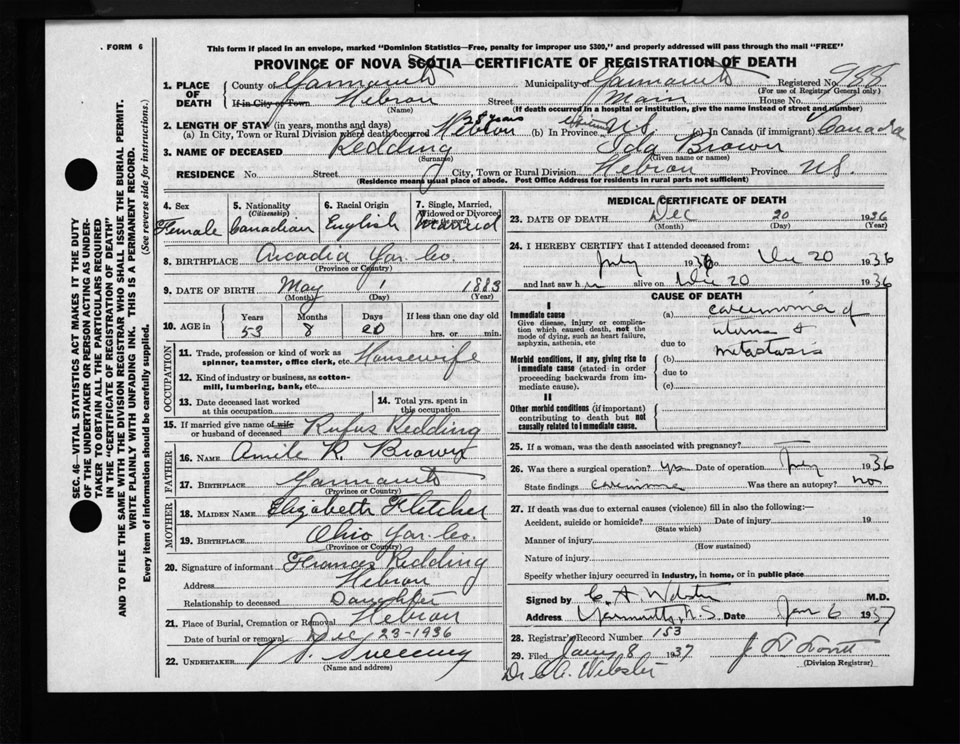 FORM 6
This form if placed in an envelope, marked "Dominion Statistics—Free, penalty for improper use $300," and properly addressed will pass through the mail "FREE"
PROVINCE OF NOVA SCOTIA—CERTIFICATE OF REGISTRATION OF DEATH
1. PLACE OF DEATH
County of Yarmouth Municipality of Yarmouth Registered No. 988
(For use of Registrar General only)
If in City or Town Hebron Street Main House No.
(Name) (If death occurred in a hospital or institution, give the name instead of street and number)
2. LENGTH OF STAY (in years, months and days)
(a) In City, Town or Rural Division where death occurred Hebron 28 years (b) In Province NS (c) In Canada (if immigrant) Canada
3. NAME OF DECEASED Redding Ida Brown
(Surname) (Given name or names)
RESIDENCE No. Street City, Town or Rural Division Hebron Province NS.
(Residence means usual place of abode. Post Office Address for residents in rural parts not sufficient)
4. Sex Female
5. Nationality (Citizenship) Canadian
6. Racial Origin English
7. Single, Married, Widowed or Divorced (write the word) Married
8. BIRTHPLACE Arcadia Yar. Co.
(Province or Country)
9. DATE OF BIRTH May 1 1883
(Month) (Day) (Year)
10. AGE in Years Months Days If less than one day old
53 8 20 hrs. or min.
OCCUPATION
11. Trade, profession or kind of work as spinner, teamster, office clerk, etc. Housewife
12. Kind of industry or business, as cotton-mill, lumbering, bank, etc.
13. Date deceased last worked at this occupation
14. Total yrs. spent in this occupation
15. If married give name of wife or husband of deceased Rufus Redding
FATHER
16. NAME R. Brown
17. BIRTHPLACE Yarmouth
(Province or Country)
MOTHER
18. MAIDEN NAME Elizabeth Fletcher
19. BIRTHPLACE Ohio Yar. Co.
(Province or Country)
20. Signature of informant Frances Redding
Address Hebron
Relationship to deceased Daughter
21. Place of Burial, Cremation or Removal Hebron
Date of burial or removal Dec 23-1936
22. UNDERTAKER V. S. Sweeny
(Name and address)
MEDICAL CERTIFICATE OF DEATH
23. DATE OF DEATH Dec 20 1936
(Month) (Day) (Year)
24. I HEREBY CERTIFY that I attended deceased from:
July 1936 to Dec 20 1936
and last saw her alive on Dec 20 1936
CAUSE OF DEATH
I
Immediate cause
Give disease, injury or complication which caused death, not the mode of dying, such as heart failure, asphyxia, asthenia, etc
(a) carcinoma of
uterus &
due to metastasis
Morbid conditions, if any, giving rise to immediate cause (stated in order proceeding backwards from immediate cause).
(b)
due to
(c)
II
Other morbid conditions (if important) contributing to death but not causally related to immediate cause.
25. If a woman, was the death associated with pregnancy?
26. Was there a surgical operation? yes Date of operation July 1936
State findings Was there an autopsy? no
27. If death was due to external causes (violence) fill in also the following:—
Accident, suicide or homicide? Date of injury 19
(State which)
Manner of injury
(How sustained)
Nature of injury
Specify whether injury occurred in industry, in home, or in public place
Signed by C. A. Webster M.D.
Address Yarmouth, N.S. Date Jan 6 1937
28. Registrar's Record Number 153
29. Filed Jany 8 1937
(Division Registrar)
Dr C A. Webster
SEC. 46—VITAL STATISTICS ACT MAKES IT THE DUTY
OF THE UNDERTAKER OR PERSON ACTING AS UNDERTAKER TO OBTAIN ALL THE PARTICULARS REQUIRED
IN THE "CERTIFICATE OF REGISTRATION OF DEATH"
AND TO FILE THE SAME WITH THE DIVISION REGISTRAR WHO SHALL ISSUE THE BURIAL PERMIT.
WRITE PLAINLY WITH UNFADING INK. THIS IS A PERMANENT RECORD.
Every item of information should be carefully supplied. (See reverse side for instructions.)